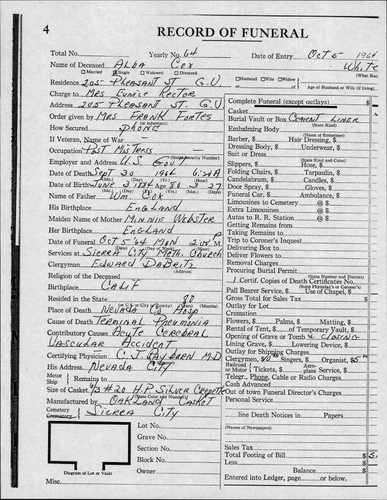 4 RECORD OF FUNERAL
Total No. Yearly No. 64 Date of Entry Oct 5 1964
Name of Deceased Alba Cox White
Married Single Widowed Divorced Husband Wife Widow of Age of Husband or Wife (if living)
Residence 205 Pleasant St. G.V.
Charge to Mrs Eunice Rector
Address 205 Pleasant St. G.V
Order given by Mrs Frank Fortes
How Secured Phone
If Veteran, Name of War
Occupation Post Mistress
Employer and Address U.S. Gov't
(Social Security Number)
Date of Death Sept 30 1964 6:20A
Date of Birth June 3 1884 Age 80 3 27
Name of Father Wm. Cox
His Birthplace England
Maiden Name of Mother Minnie Webster
Her Birthplace England
Date of Funeral Oct 5 '64 Mon 2:00 P.M.
Services at Sierra City Meth. Church
Clergyman Edward DaBritz
Religion of the Deceased
Birthplace Calif
Resided in the State 80
(or U.S. or City or County) (Yrs.)
Place of Death Nevada Co Hosp
Cause of Death Terminal Pneumonia
Contributory Causes Acute Cerebral
Vascular Accident
Certifying Physician M.D
His Address Nevada City
Motor
Ship Remains to
Size of Casket 6/3 #20 H.P. Silver
Manufactured by Oakland Casket
Cemetery
Crematory Sierra City
Lot No.
Grave No.
Section No.
Block No.
Owner
Diagram of Lot or Vault
Misc.
Complete Funeral (except outlays) $
Casket
Burial Vault or Box Cement Liner
(State Kind)
Embalming Body
(Name of Embalmer)
Barber, $ Hair Dressing, $
Dressing Body, $ Underwear, $
Suit or Dress
(State Kind and Color)
Slippers, $ Hose, $
Folding Chairs, $ Tarpaulin, $
Candelabrum, $ Candles, $
Door Spray, $ Gloves, $
Funeral Car, $ Ambulance, $
Limousines to Cemetery @ $
Extra Limousines @ $
Autos to R. R. Station @ $
Getting Remains from
Taking Remains to
Trip to Coroner's Inquest
Delivering Box to
Deliver Flowers to
Removal Charges
Procuring Burial Permit
(State Number and District)
1 Certif. Copies of Death Certificates No.
Pall Bearer Service, $ Use of Chapel, $
Gross Total for Sales Tax $
Outlay for Lot
Cremation
Flowers, $ Palms, $ Matting, $
Rental of Tent, $ of Temporary Vault, $
Opening of Grave or Tomb & Closing
Lining Grave, $ Lowering Device, $
Outlay for Shipping Charges
Clergyman, $ Singers, $ Organist, $
Railroad or Motor Tickets, $ Aeroplane Service, $
Telegr., Phone, Cable or Radio Charges
Cash Advanced
Out of town Funeral Director's Charges
Personal Service
(Names of Newspapers)
line Death Notices in Papers
(Names of Newspapers)
Sales Tax
Total Footing of Bill $
Less
Balance $
Entered into Ledger, page or below.